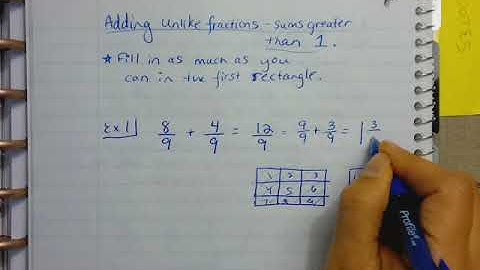 Adding unlike fractions - sums greater
than 1.
* Fill in as much as you
can in the first rectangle.
Ex 1 8/9 + 4/9 = 12/9 = 9/9 + 3/9 = 1 3/
1 2 3
4 5 6
7 8 9
Profile